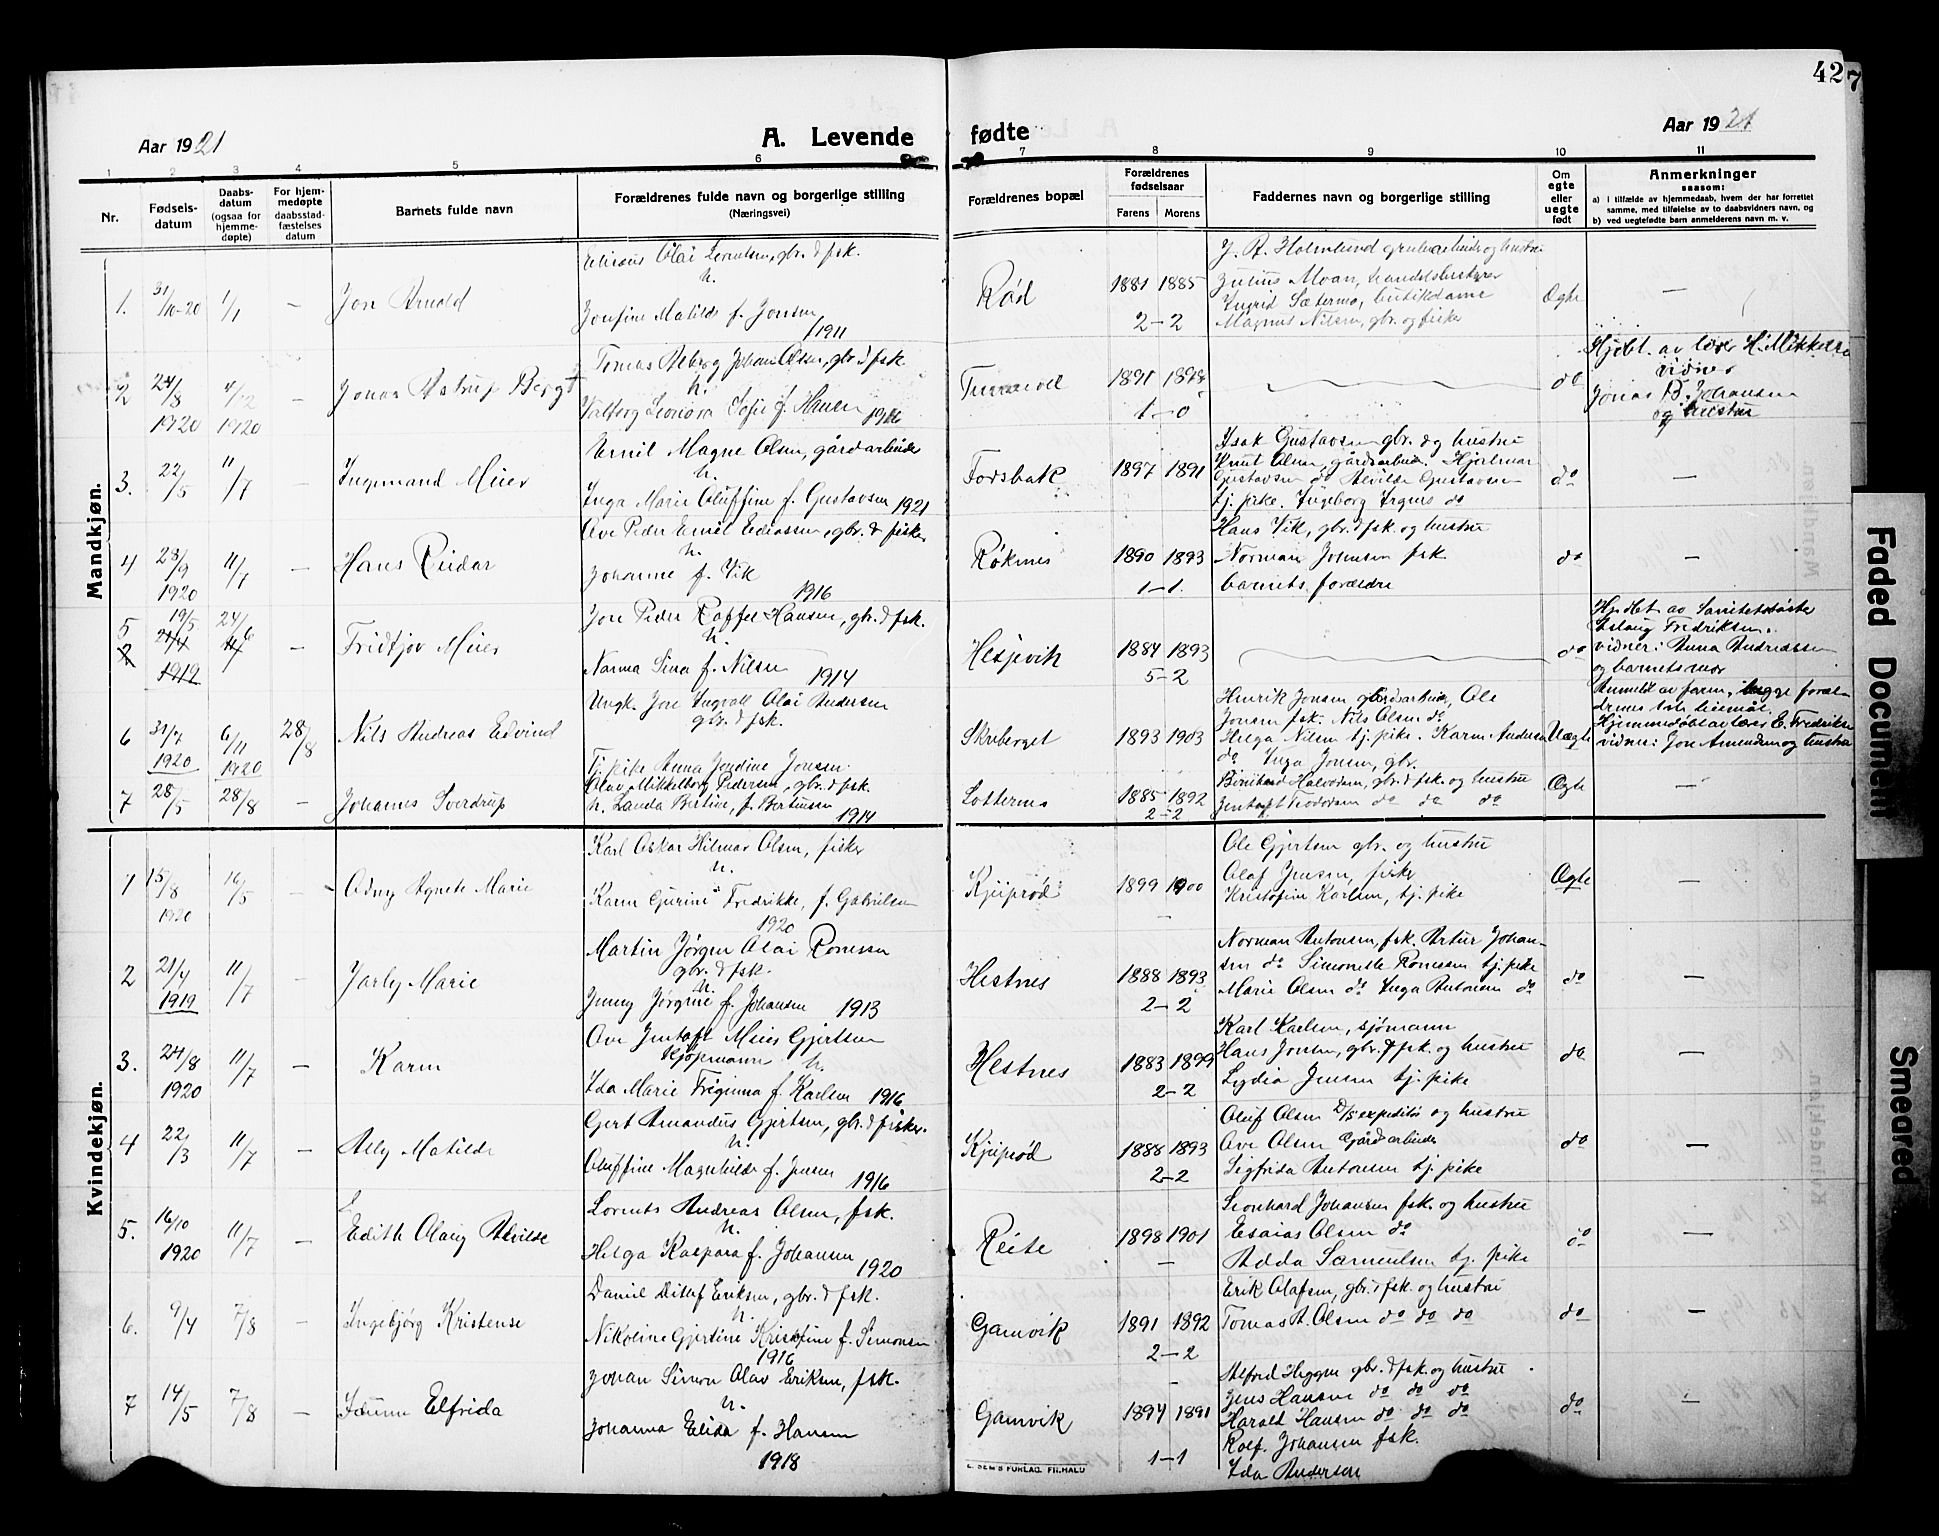 427
Aar 1921
A. Levende fødte
Aar 1921
1 2 3 4 5 6 7 8 9 10 11
Nr.
Fødsels-
datum
Daabs-
datum
(ogsaa for
hjemme-
døpte)
For hjem-
medøpte
daabsstad-
fæstelses
datum
Barnets fulde navn
Forældrenes fulde navn og borgerlige stilling
(Næringsvei)
Forældrenes bopæl
Forældrenes
fødselsaar
Farens Morens
Faddernes navn og borgerlige stilling
Om
egte
eller
uegte
født
Anmerkninger
saasom:
a) i tilfælde av hjemmedaab, hvem der har forrettet
samme, med tilføielse av to daabsvidners navn, og
b) ved uegtefødte barn anmelderens navn m. v.
Mandkjøn.
1. 31/10-20 1/1 —
Jon Arnold
Olai gbr. & fsk.
h.
Josefine Matilde f. Jonsen
1911
Rød
1881 1885
2 – 2
J. A. Holmlund grubearbeider og hustru
Julius Moan, handelsbestyrer
Ingrid Sætermo, butikdame
Magnus Nilsen, gbr. og fisker
Ægte
—
2 24/8 1920 4/12 1920 —
Jonas Astrup Bergt
Tomas Johan Olsen, gbr. & fsk.
h.
Valborg Leonora Sofie f. Hansen 1916
1891
1 – 0
do
Hjdbt. av lærer H. Mikkelsen
vidner
Jonas B. Johansen
og hustru
3. 22/5 11/7 —
Ingemand Meier
Emil Magne Olsen, gårdarbeider
h.
Inga Marie Oluffine f. Gustavsen 1921
Forsbak
1897 1891
Isak Gustavsen gbr. og hustru
Knut Olsen, gårdsarbeid. Hjalmar
Gustavsen do Alvilde Gustavsen
tj. pike. Ingeborg do
do
—
4 23/9 1920 11/7 —
Hans Reidar
Ove Peder Emil Ediassen, gbr. & fisker
h.
Johanne f. Vik
1916
Røknes
1890 1893
1 – 1.
Hans Vik, gbr. & fsk. og hustru
Norman Johnsen fsk
barnets forældre
do
—
5 19/5 24/6 —
1919
Fridtjov Meier
Jon Peder Raffel Hansen, gbr. & fsk.
h.
Nanna Sina f. Nilsen
1914
Hespvik
1884 1893
5 – 2
do
Hj. dbt. av Sanitetssøster
Aslaug Fredriksen.
vidner: Anna Andreassen
og barnets mor
6 31/7 1920 6/11 1920 28/8
Nils Andreas Edvind
Ungk. Jon Ingvall Olai Andersen
gbr. & fsk.
Tj. pike Anna Jondine Jonsen
Skuberget
1893 1903
Henrik Jonsen gårdsarbeid, Ole
Jonsen fsk. Nils Olsen do
Helga Nilsen tj. pike. Karen Andersen
do Inga Jonsen, gbr.
Uægte
Anmeldt av faren, begge foræl-
drenes 1ste leiemål.
Hjemmedøbt av lærer E. Fredriksen
vidner: Jon Amundsen og hustru
7 28/5 28/8 —
Johannes Sverdrup
Olav Mikkelborg Pedersen, gbr. & fsk.
h. Landa Bertine, f. Berntsen
1914
1885 1892
2 – 2
Bernhard Halvorsen, gbr. & fsk. og hustru
Jentoft Teodorsen do do do
Ægte
—
Kvindekjøn.
1 15/8 1920 16/5 —
Odny Agnete Marie
Karl Oskar Hilmar Olsen, fisker
h.
Karen Gurine Fredrikke, f. Gabrielsen
1920
Kjeiprød
1899 1900
—
Ole Gjertsen gbr. og hustru
Olaf Jensen, fisker
Kristofine Karlsen, tj. pike
Ægte
—
2 21/4 1919 11/7 —
Jarly Marie
Martin Jørgen Olai Romssen
gbr. & fsk.
h.
Jenny Jørgine f. Johansen 1913
Hestnes
1888 1893
2 – 2
Norman Antonsen, fsk. Artur Johan-
sen do Simonette Romssen tj. pike
Marie Olsen do Inga Antonsen do
do
—
3. 24/8 1920 11/7 —
Karen
Ove Jentoft Meier Gjertsen
Kjøpmann h.
Ida Marie f. Karlsen 1916
Hestnes
1883 1899
2 – 2
Karl Karlsen, sjømann
Hans Jensen, gbr. & fsk. og hustru
Lydia Jensen tj. pike
do
—
4 22/3 11/7 —
Ally Matilde
Gert Amandus Gjertsen, gbr. & fisker.
h.
Oluffine Magnhilde f. Jensen 1916
Kjeiprød
1888 1893
2 – 2
Oluf Olsen D/S expeditør og hustru
Ove Olsen Gårdsarbeider
Sigfrida Antonsen tj. pike
do
—
5. 16/10 1920 11/7 —
Edith Olaug Alvilde
Lorents Andreas Olsen, fsk.
h.
Helga Kaspara f. Johansen
1920
Reite
1898 1901
—
Leonhard Johansen fsk. og hustru
Esaias Olsen do
Adda Samuelsen tj. pike
do
—
6. 9/4 7/8 —
Ingebjørg Kristense
Daniel Ditlef Eriksen, gbr. & fsk.
h.
Nikoline Gjertine Kristofine f. Simonsen
1916
Gamvik
1891 1892
2 – 2
Erik Olafsen, gbr. & fsk. og hustru
Tomas A. Olsen do do do
do
—
7 14/5 7/8 —
Idunn Elfrida
Johan Simon Olav Eriksen, fsk.
h.
Johanna Elida f. Hansen
1918
Gamvik
1894 1891
1 – 1
Alfred Heggen gbr. & fsk. og hustru
Jens Hansen do do do
Harald Hansen do do do
Rolf. Johansen fsk.
Ida Andersen
do
—
E. SEM'S FORLAG, FR.HALD
Faded Document
Smeared